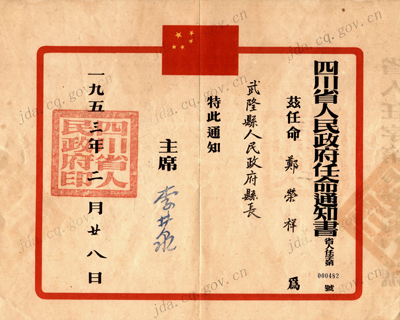 四川省人民政府任命通知書
省人任字第
000482
號
茲任命 鄭榮祥 為
武隆縣人民政府縣長
特此通知
主席 李井泉
一九五三年二月廿八日
四川省人
民政府印
jda.cq.gov.cn